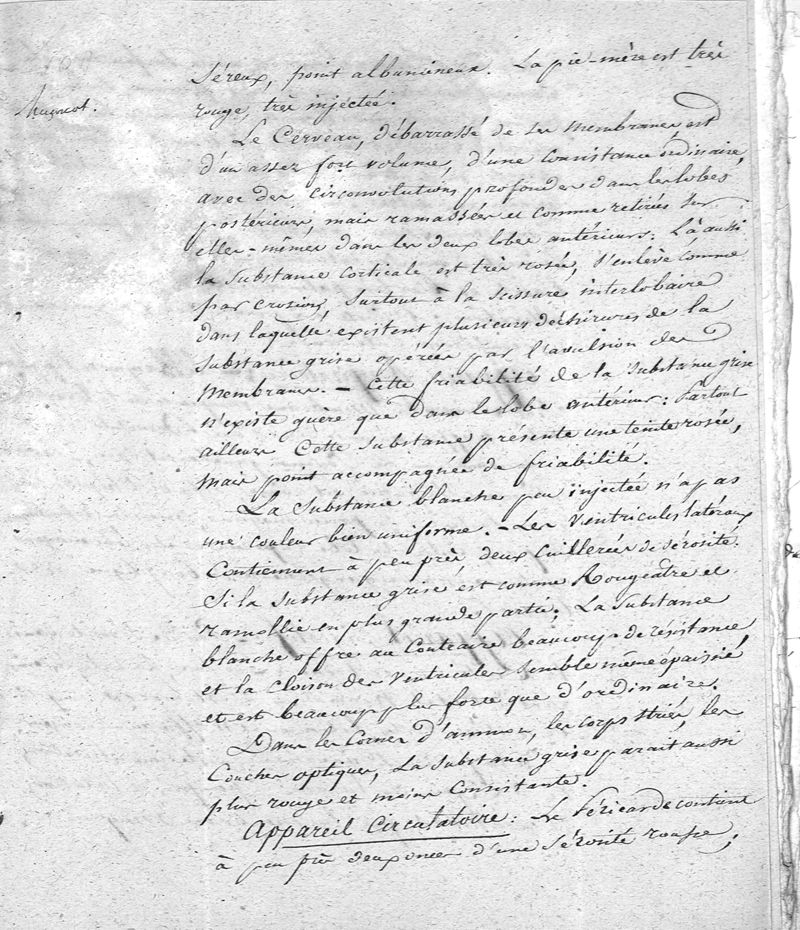 séreux, point albumineux. La pie-mère est très
rouge, très injectée.
Le Cerveau, débarrassé de ses membranes, est
d'un assez fort volume, d'une Consistance ordinaire,
avec des circonvolutions profondes dans les lobes
postérieurs, mais ramassées et comme retirées sur
elles-mêmes dans les deux lobes antérieurs. Là aussi
la substance corticale est très rosée, s'enlève comme
par erosion, surtout à la scissure interlobaire
dans laquelle existent plusieurs déchirures de la
substance grise opérées par l'avulsion des
membranes. — Cette friabilité de la substance grise
n'existe guère que dans le lobe antérieur: Partout
ailleurs Cette substance présente une teinte rosée,
mais point accompagnée de friabilité.
La Substance blanche peu injectée n'a pas
une couleur bien uniforme. — Les ventricules latéraux
Contiennent à peu près deux Cuillerées de sérosité.
Si la substance grise est comme Rougeâtre et
ramollie en plus grande partie, La Substance
blanche offre au Contraire beaucoup de résistance
et la Cloison des ventricules semble même épaissie
et est beaucoup plus forte que d'ordinaire.
Dans les Cornes d'ammon, les corps striés, les
Couches optiques, La substance grise parait aussi
plus rouge et moins Consistante.
Appareil Circulatoire: Le Péricarde contient
à peu près deux onces d'une sérosité rousse,